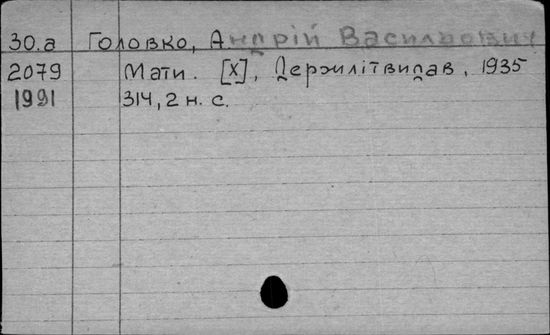 30.а Головко, Андрій Васильович
2079 Мати. [Х], Держлітвидав, 1935
1991 314, 2 н. с.